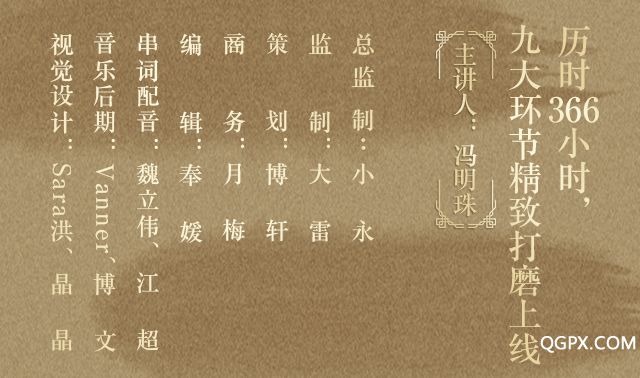 历时366小时，
九大环节精致打磨上线
主讲人：冯明珠
总监制：小永
监制：大雷
策划：博轩
商务：月梅
编辑：奉媛
串词配音：魏立伟、江超
音乐后期：Vanner、博文
视觉设计：Sara洪、晶晶
QGPX.COM